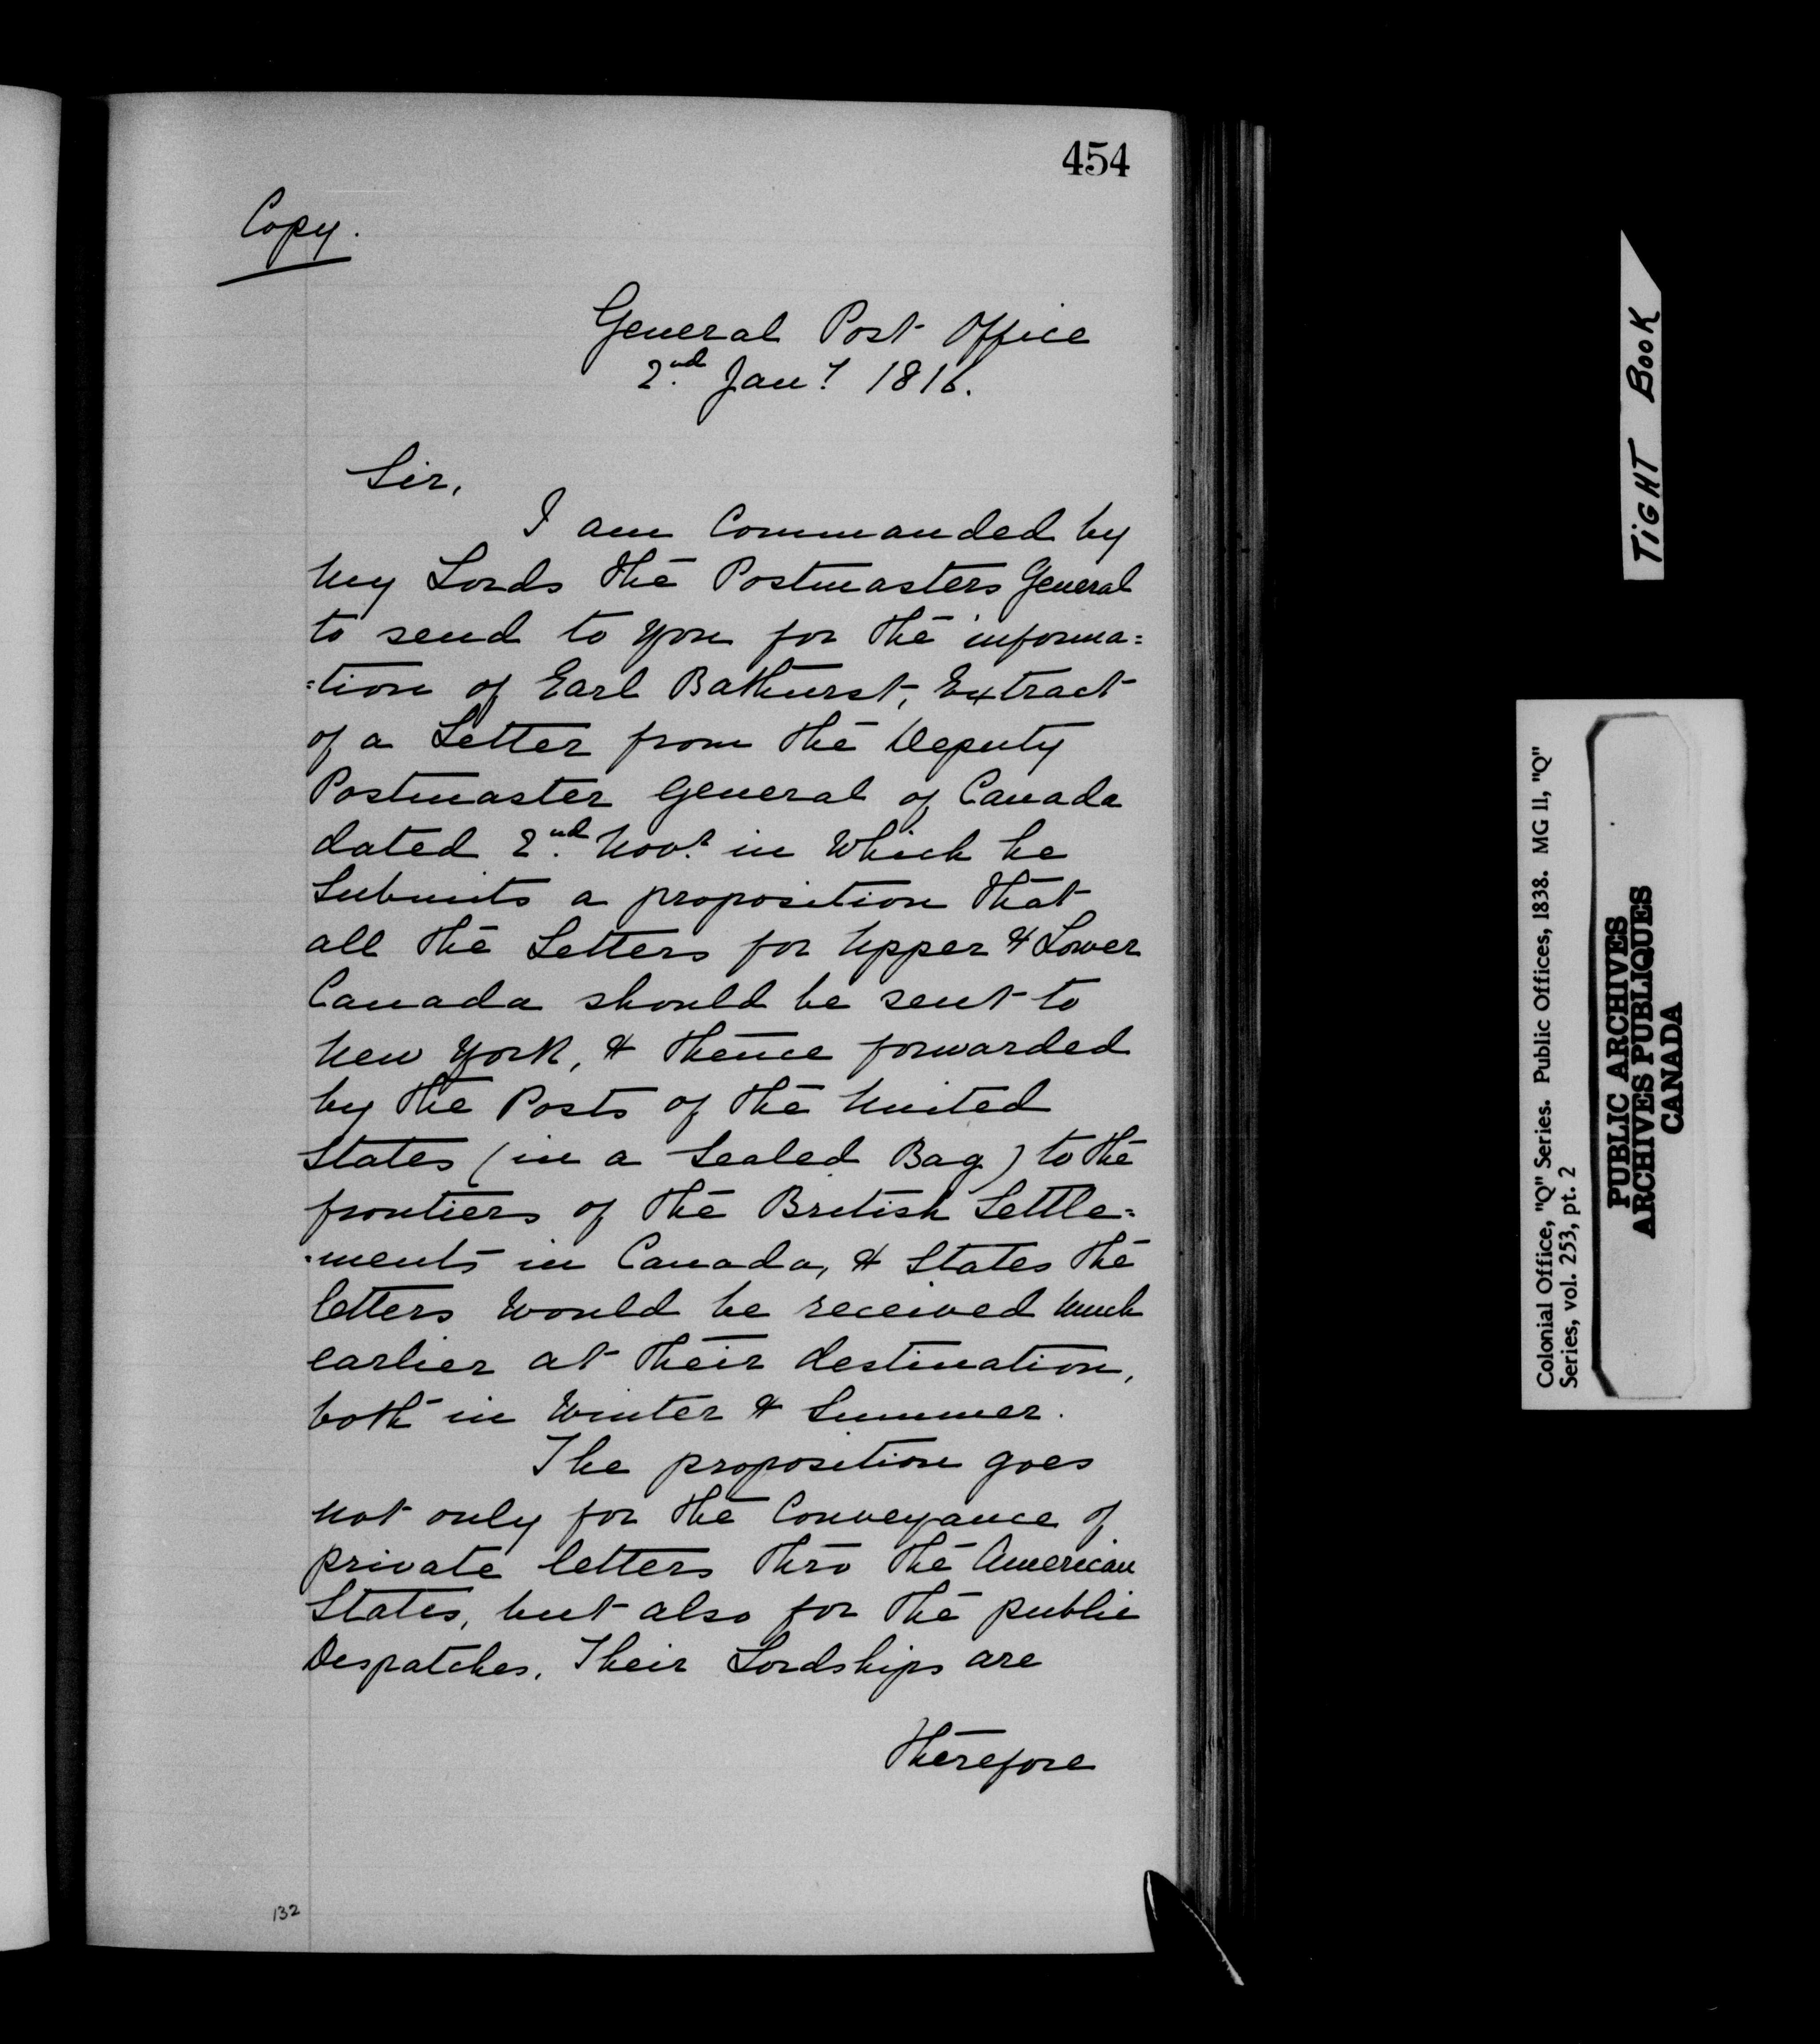 454
Copy.
General Post Office
2nd Jany 1816.
Sir,
I am Commanded by
my Lords the Postmasters General
to send to you for the informa=
=tion of Earl Bathurst, Extract
of a Letter from the Deputy
Postmaster General of Canada
dated 2nd Novr in which he
Submits a proposition that
all the Letters for Upper & Lower
Canada should be sent to
New York, & thence forwarded
by the Posts of the United
States (in a Sealed Bag) to the
frontiers of the British Settle=
=ments in Canada, & States the
letters would be received much
earlier at their destination,
both in Winter & Summer.
The proposition goes
not only for the Conveyance of
private letters thro the American
States, but also for the public
Despatches. Their Lordships are
therefore
132
TIGHT BOOK
Colonial Office, "Q" Series. Public Offices, 1838. MG 11, "Q"
Series, vol. 253, pt. 2
PUBLIC ARCHIVES
ARCHIVES PUBLIQUES
CANADA